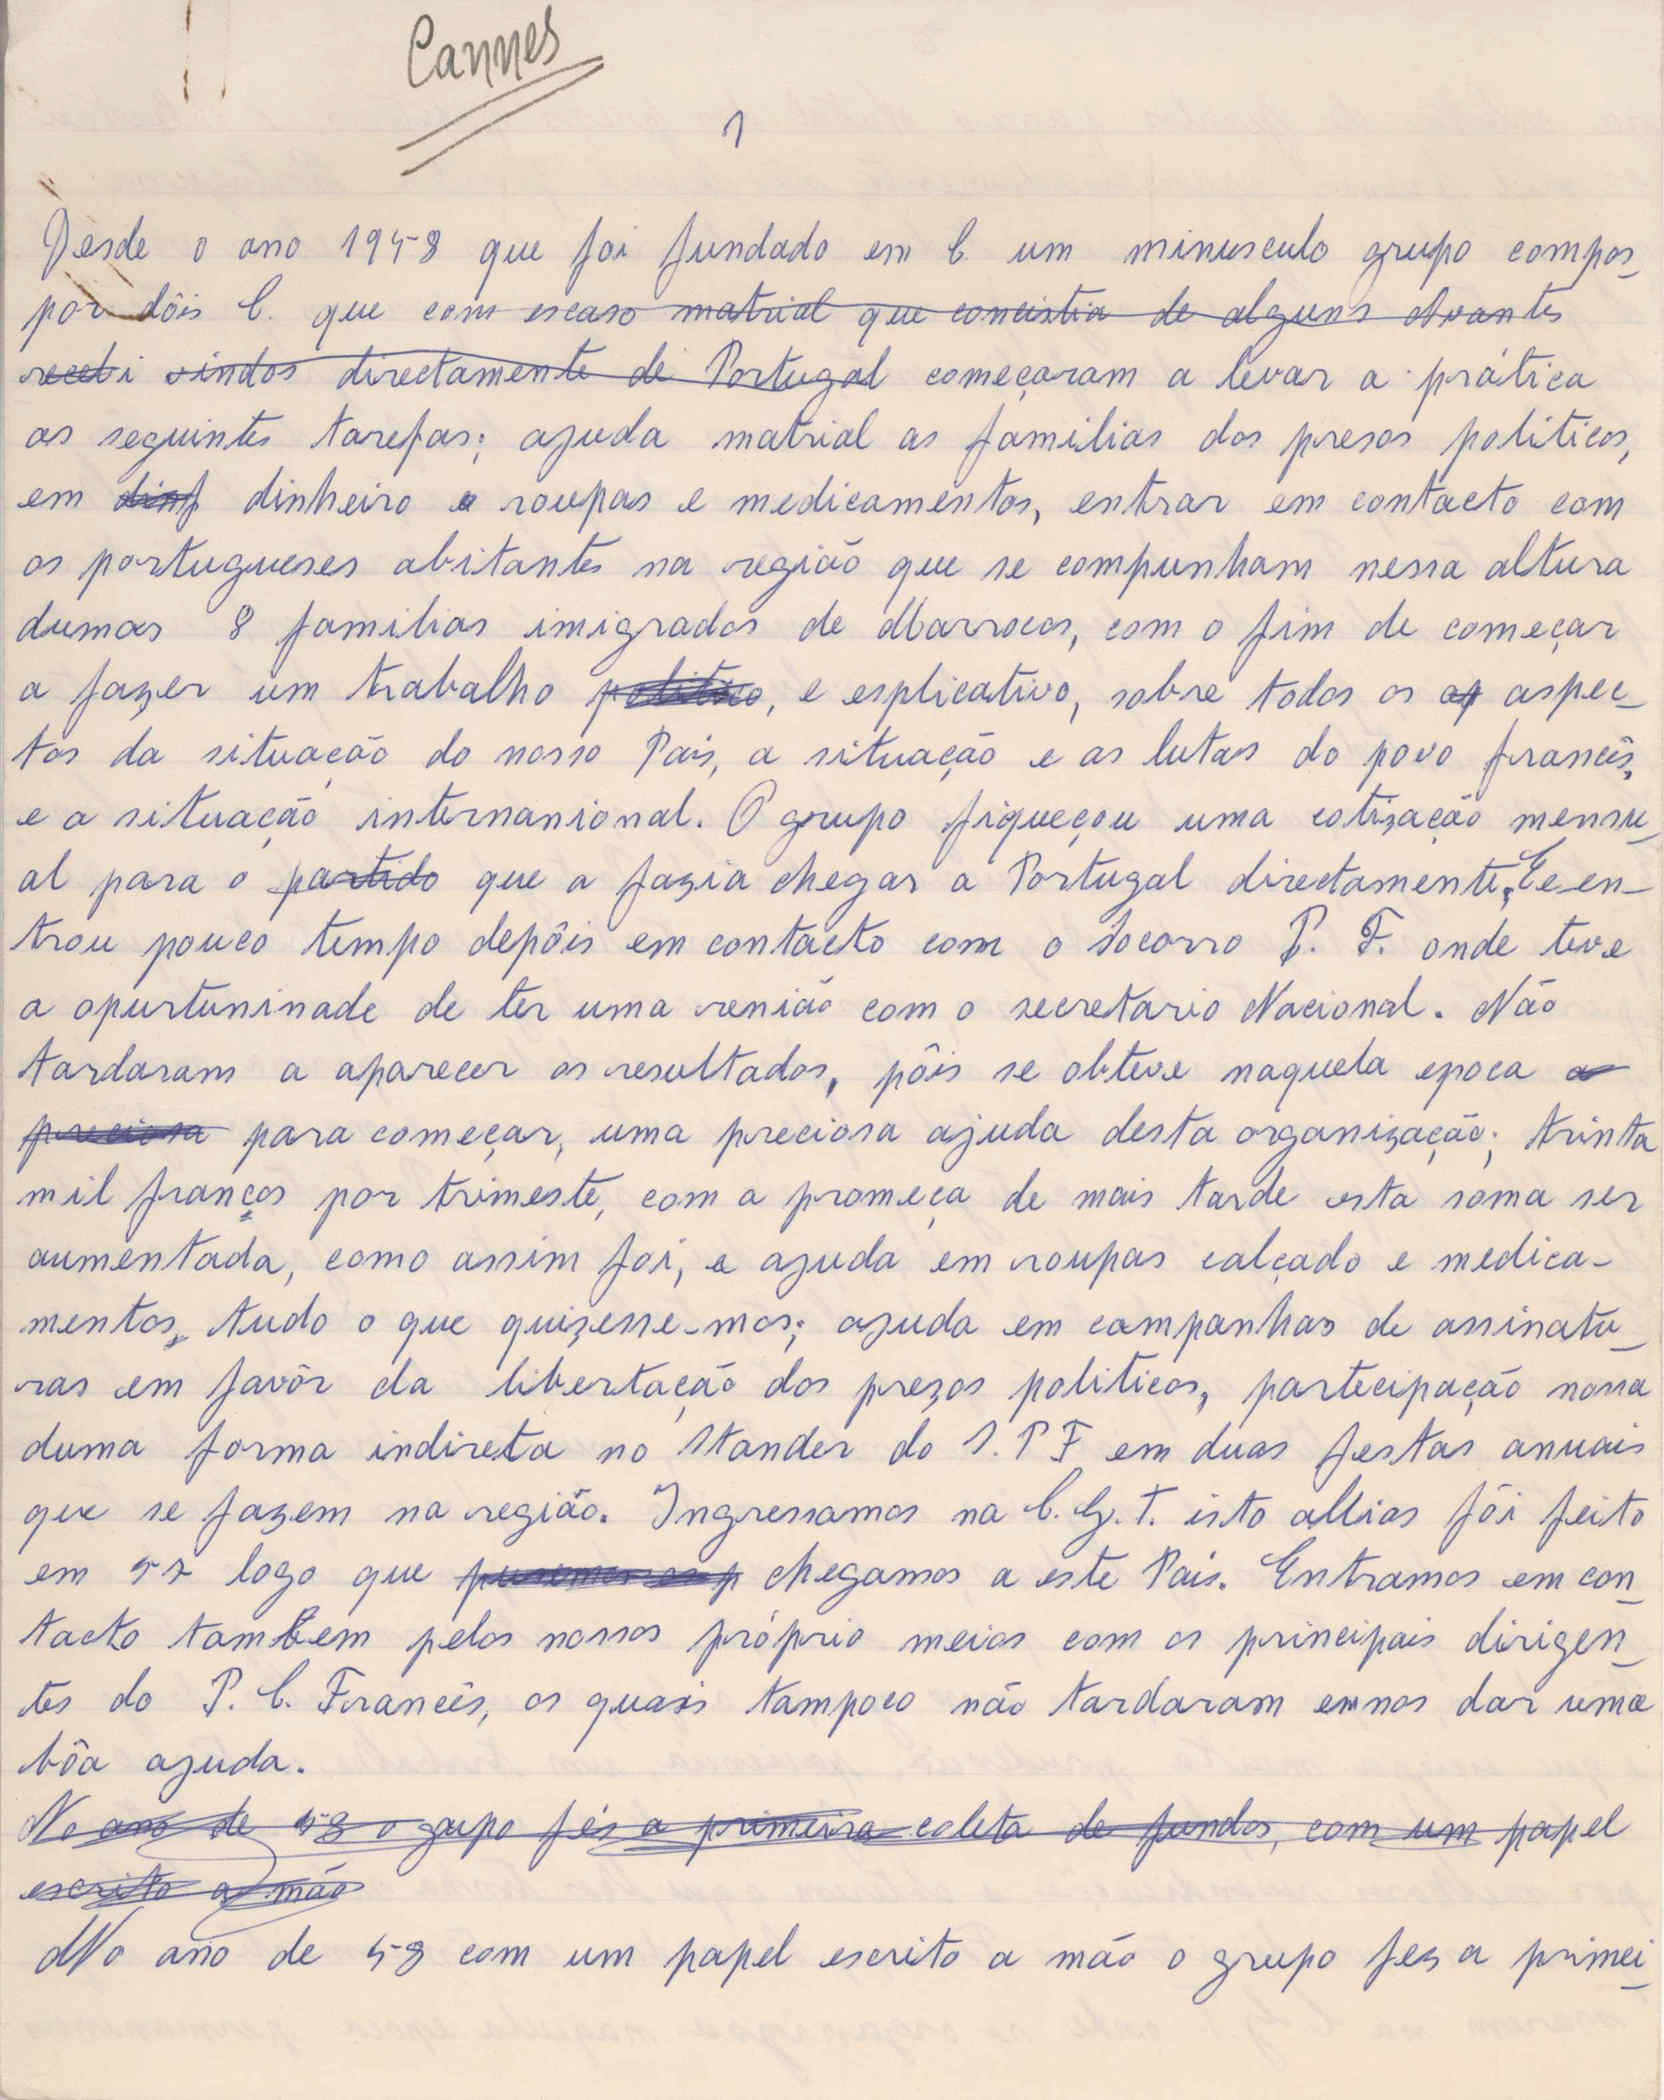 Cannes
1
Desde o ano 1958 que foi fundado em C um minusculo grupo compos_
por dôis C. que com escaso matrial que concistia de alguns Avantes
recebi vindos directamente de Portugal começaram a levar a prática
as seguintes tarefas; ajuda matrial as familias dos presos politicos,
em dinheiro e roupas e medicamentos, entrar em contacto com
os portugueses abitantes na região que se compunham nessa altura
dumas 8 familias imigradas de Marrocos, com o fim de começar
a fazer um trabalho politico, e esplicativo, sobre todos os ap aspec_
tos da situação do nosso Pais, a situação e as lutas do povo francês,
e a situação internanional. O grupo fiqueçou uma cotização mensu_
al para o partido que a fazia chegar a Portugal directamente. E e en_
trou pouco tempo depôis em contacto com o Socorro P. F. onde teve
a opurtuninade de ter uma renião com o secretario Nacional. Não
tardaram a aparecer os resultados, pôis se obteve naquela epoca a
preciosa para começar, uma preciosa ajuda desta organização; trinta
mil franços por trimeste, com a promeça de mais tarde esta soma ser
aumentada, como assim foi, e ajuda em roupas calçado e medica-
mentos, tudo o que quizesse-mos; ajuda em campanhas de assinatu_
ras em favôr da libertação dos prezos politicos, partecipação nossa
duma forma indireta no Stander do S. P F em duas festas anuais
que se fazem na região. Ingressamos na C. G. T. isto allias fôi feito
em 57 logo que chegamos a este Pais. Entramos em con_
tacto tambem pelos nossos próprio meios com os principais dirigen_
tes do P. C. Francês, os quais tampoco não tardaram em nos dar uma
bôa ajuda.
No ano de 58 o gupo fés a primeira coleta de fundos, com um papel
escrito a mão
No ano de 58 com um papel escrito a mão o grupo fez a primei_